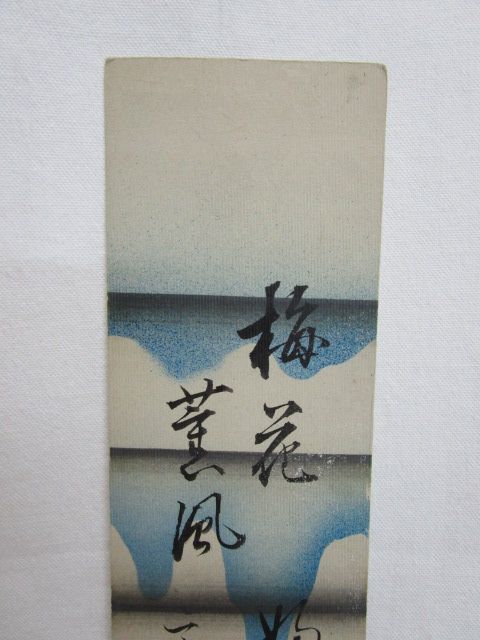 梅花
薫風